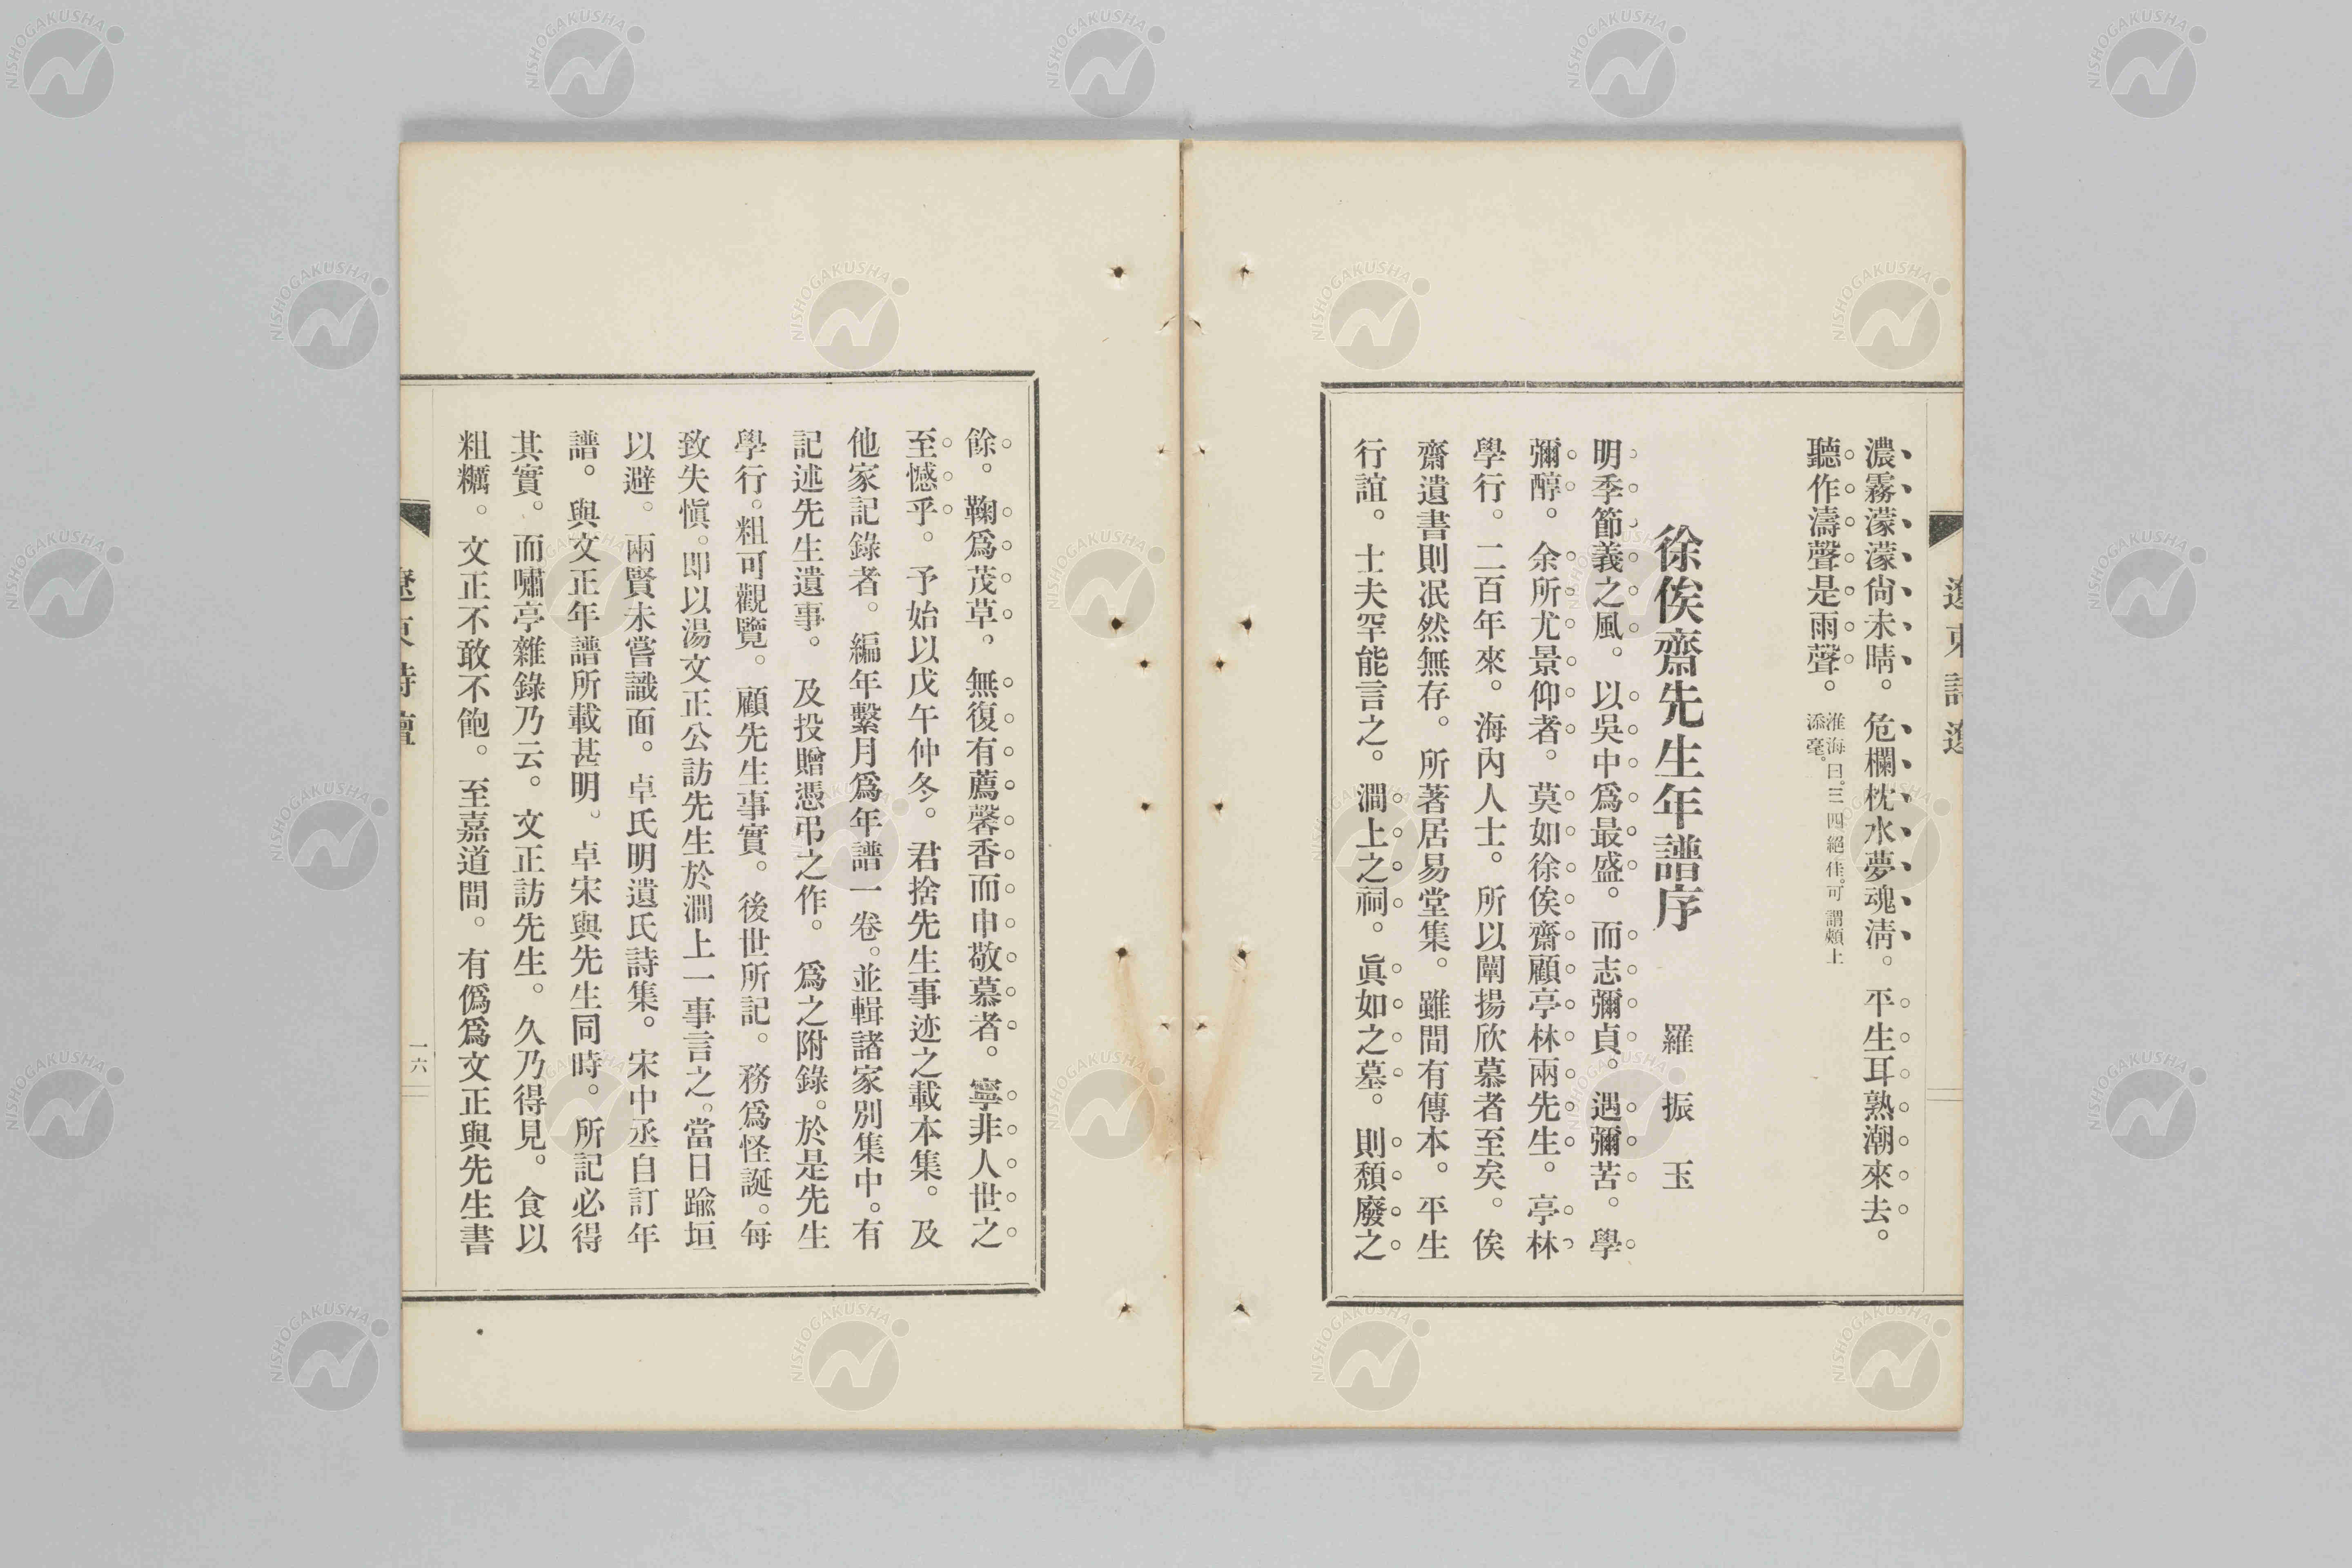 濃霧濛濛尙未晴。危欄枕水夢魂淸。平生耳熟潮來去。
聽作濤聲是雨聲。
淮海曰。三四絕佳。可謂頰上
添毫。
徐俟齋先生年譜序
羅振玉
明季節義之風。以吳中爲最盛。而志彌貞。遇彌苦。學
彌醇。余所尤景仰者。莫如徐俟齋顧亭林兩先生。亭林
學行。二百年來。海內人士。所以闡揚欣慕者至矣。俟
齋遺書則泯然無存。所著居易堂集。雖間有傳本。平生
行誼。士夫罕能言之。澗上之祠。眞如之墓。則頹廢之
餘。鞠爲茂草。無復有薦馨香而申敬慕者。寧非人世之
至憾乎。予始以戊午仲冬。君捨先生事迹之載本集。及
他家記錄者。編年繫月爲年譜一卷。並輯諸家別集中。有
記述先生遺事。及投贈憑弔之作。爲之附錄。於是先生
學行。粗可觀覽。顧先生事實。後世所記。務爲怪誕。每
致失愼。即以湯文正公訪先生於澗上一事言之。當日踰垣
以避。兩賢未嘗識面。卓氏明遺氏詩集。宋中丞自訂年
譜。與文正年譜所載甚明。卓宋與先生同時。所記必得
其實。而嘯亭雜錄乃云。文正訪先生。久乃得見。食以
粗糲。文正不敢不飽。至嘉道間。有僞爲文正與先生書
遼東詩壇
一六